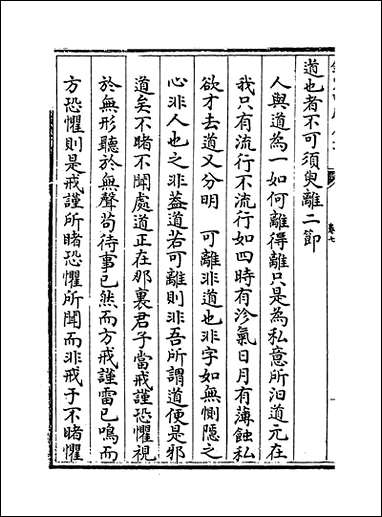 道也者不可須臾離二節
人與道為一如何離得離只是為私意所汩道元在
我只有流行不流行如四時有沴氣日月有薄蝕私
欲才去道又分明　可離非道也非字如無惻隱之
心非人也之非葢道若可離則非吾所謂道便是邪
道矣不睹不聞處道正在那裏君子當戒謹恐懼視
於無形聽於無聲茍待事已然而方戒謹雷已鳴而
方恐懼則是戒謹所睹恐懼所聞而非戒于不睹懼
卷七